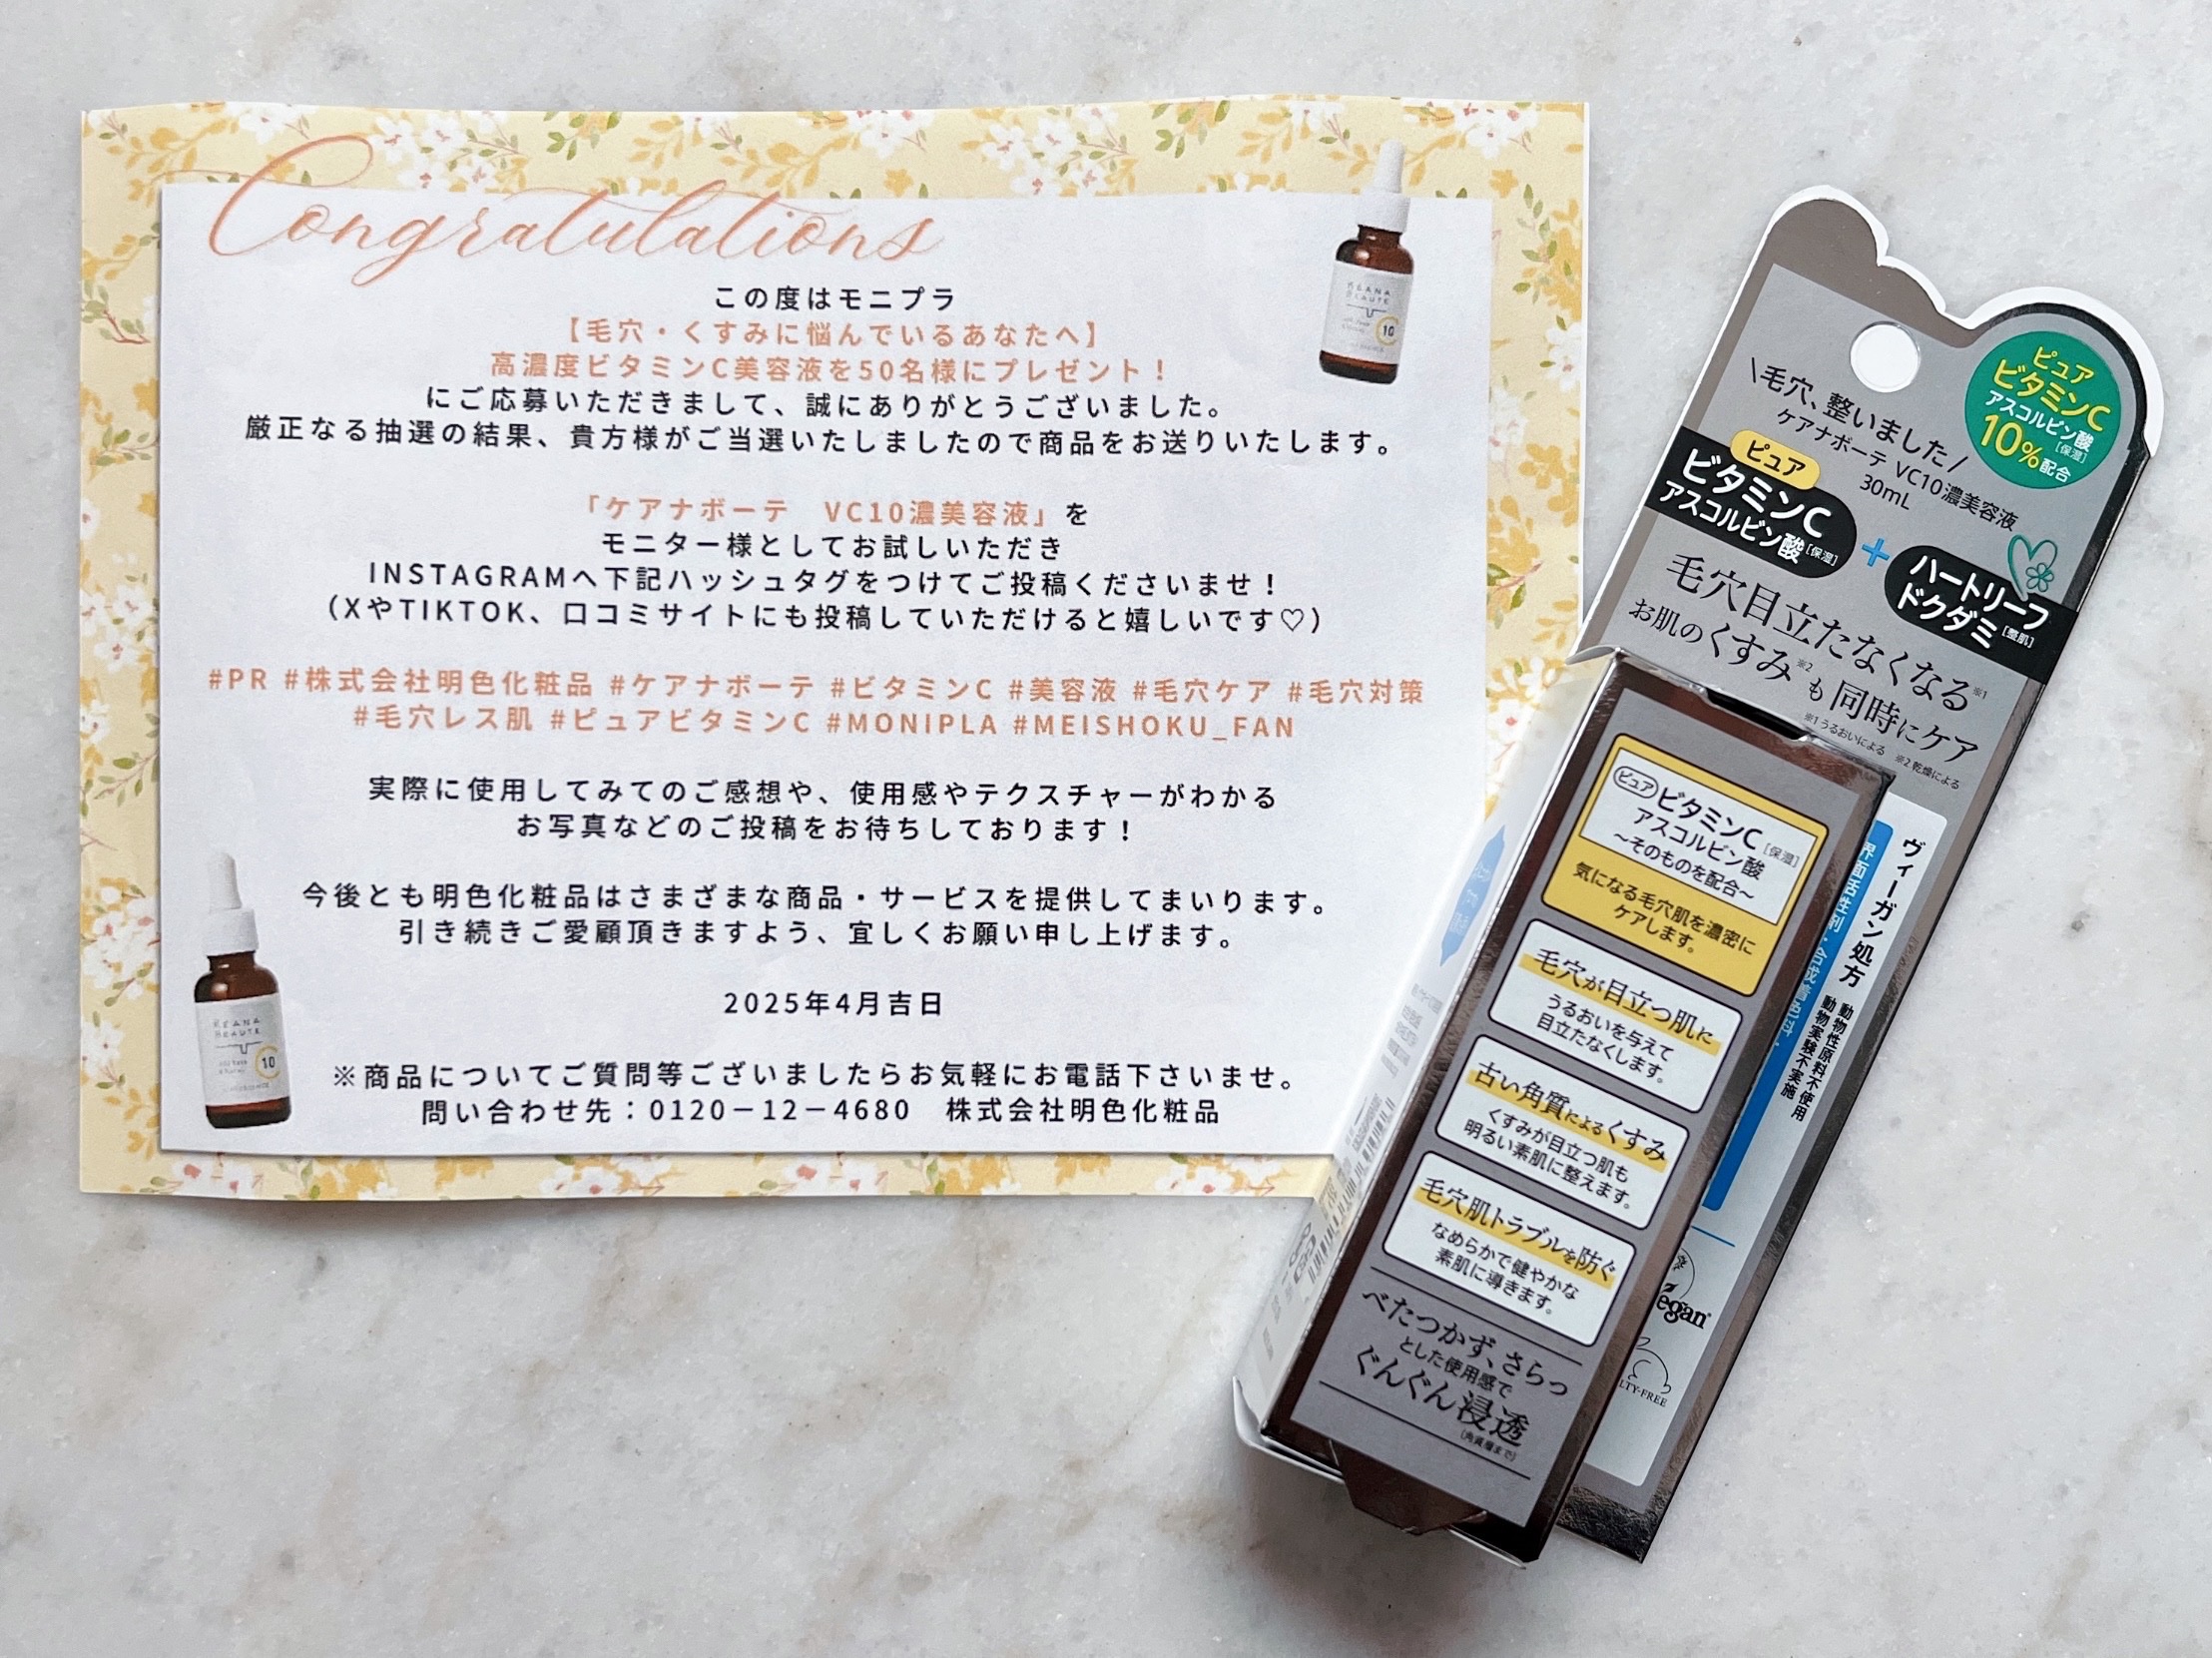 Congratulations
この度はモニプラ
【毛穴・くすみに悩んでいるあなたへ】
高濃度ビタミンC美容液を50名様にプレゼント！
にご応募いただきまして、誠にありがとうございました。
厳正なる抽選の結果、貴方様がご当選いたしましたので商品をお送りいたします。
「ケアナボーテ　VC10濃美容液」を
モニター様としてお試しいただき
INSTAGRAMへ下記ハッシュタグをつけてご投稿くださいませ！
（XやTIKTOK、口コミサイトにも投稿していただけると嬉しいです♡）
#PR #株式会社明色化粧品 #ケアナボーテ #ビタミンC #美容液 #毛穴ケア #毛穴対策
#毛穴レス肌 #ピュアビタミンC #MONIPLA #MEISHOKU_FAN
実際に使用してみてのご感想や、使用感やテクスチャーがわかる
お写真などのご投稿をお待ちしております！
今後とも明色化粧品はさまざまな商品・サービスを提供してまいります。
引き続きご愛顧頂きますよう、宜しくお願い申し上げます。
2025年4月吉日
※商品についてご質問等ございましたらお気軽にお電話下さいませ。
問い合わせ先：0120－12－4680　株式会社明色化粧品
KEANA
BEAUTE
10
KEANA
BEAUTE
10
ピュア
ビタミンC
アスコルビン酸
[保湿]
10%配合
\毛穴、整いました/
ケアナボーテ VC10濃美容液
30mL
ピュア
ビタミンC
アスコルビン酸[保湿]
+
ハートリーフ
ドクダミ[整肌]
毛穴目立たなくなる※1
お肌のくすみ※2も同時にケア
※1 うるおいによる
※2 乾燥による
ヴィーガン処方
動物性原料不使用
動物実験不実施
界面活性剤・合成着色料・
egan
LTY-FREE
ピュア ビタミンC
アスコルビン酸[保湿]
～そのものを配合～
気になる毛穴肌を濃密に
ケアします。
毛穴が目立つ肌に
うるおいを与えて
目立たなくします。
古い角質によるくすみ
くすみが目立つ肌も
明るい素肌に整えます。
毛穴肌トラブルを防ぐ
なめらかで健やかな
素肌に導きます。
べたつかず、さらっ
とした使用感で
ぐんぐん浸透
(角質層まで)